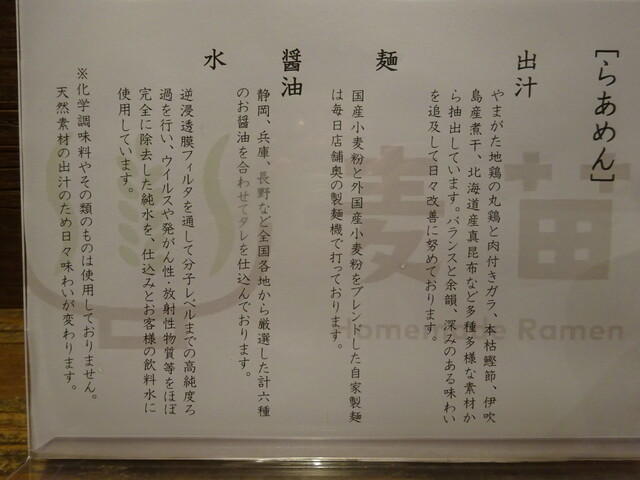 ［らあめん］
出汁
やまがた地鶏の丸鶏と肉付きガラ、本枯鰹節、伊吹
島産煮干、北海道産真昆布など多種多様な素材か
ら抽出しています。バランスと余韻、深みのある味わい
を追及して日々改善に努めております。
麺
国産小麦粉と外国産小麦粉をブレンドした自家製麺
は毎日店舗奥の製麺機で打っております。
醤油
静岡、兵庫、長野など全国各地から厳選した計六種
のお醤油を合わせてタレを仕込んでおります。
水
逆浸透膜フィルタを通して分子レベルまでの高純度ろ
過を行い、ウイルスや発がん性・放射性物質等をほぼ
完全に除去した純水を、仕込みとお客様の飲料水に
使用しています。
※化学調味料やその類のものは使用しておりません。
天然素材の出汁のため日々味わいが変わります。
麦苗
Homemade Ramen